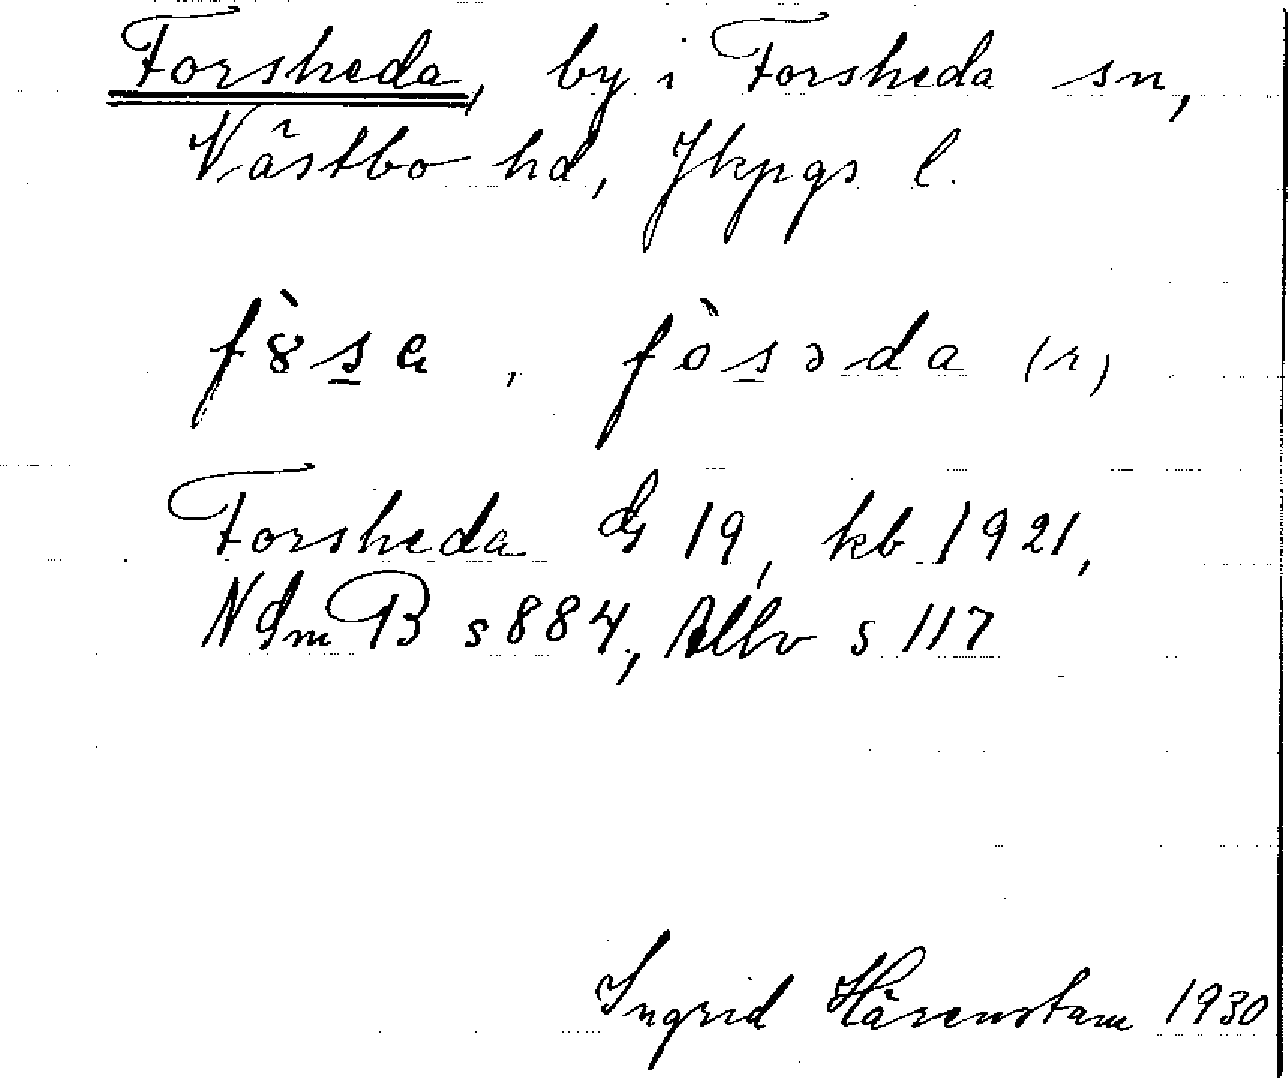 Forsheda, by i Forsheda sn,
Västbo hd, Jkpgs l.
fò̤sa, fòsəda (r)
Forsheda G 19, kb 1921,
NGmB s 884, Allv s 117
Ingrid Härenstam 1930